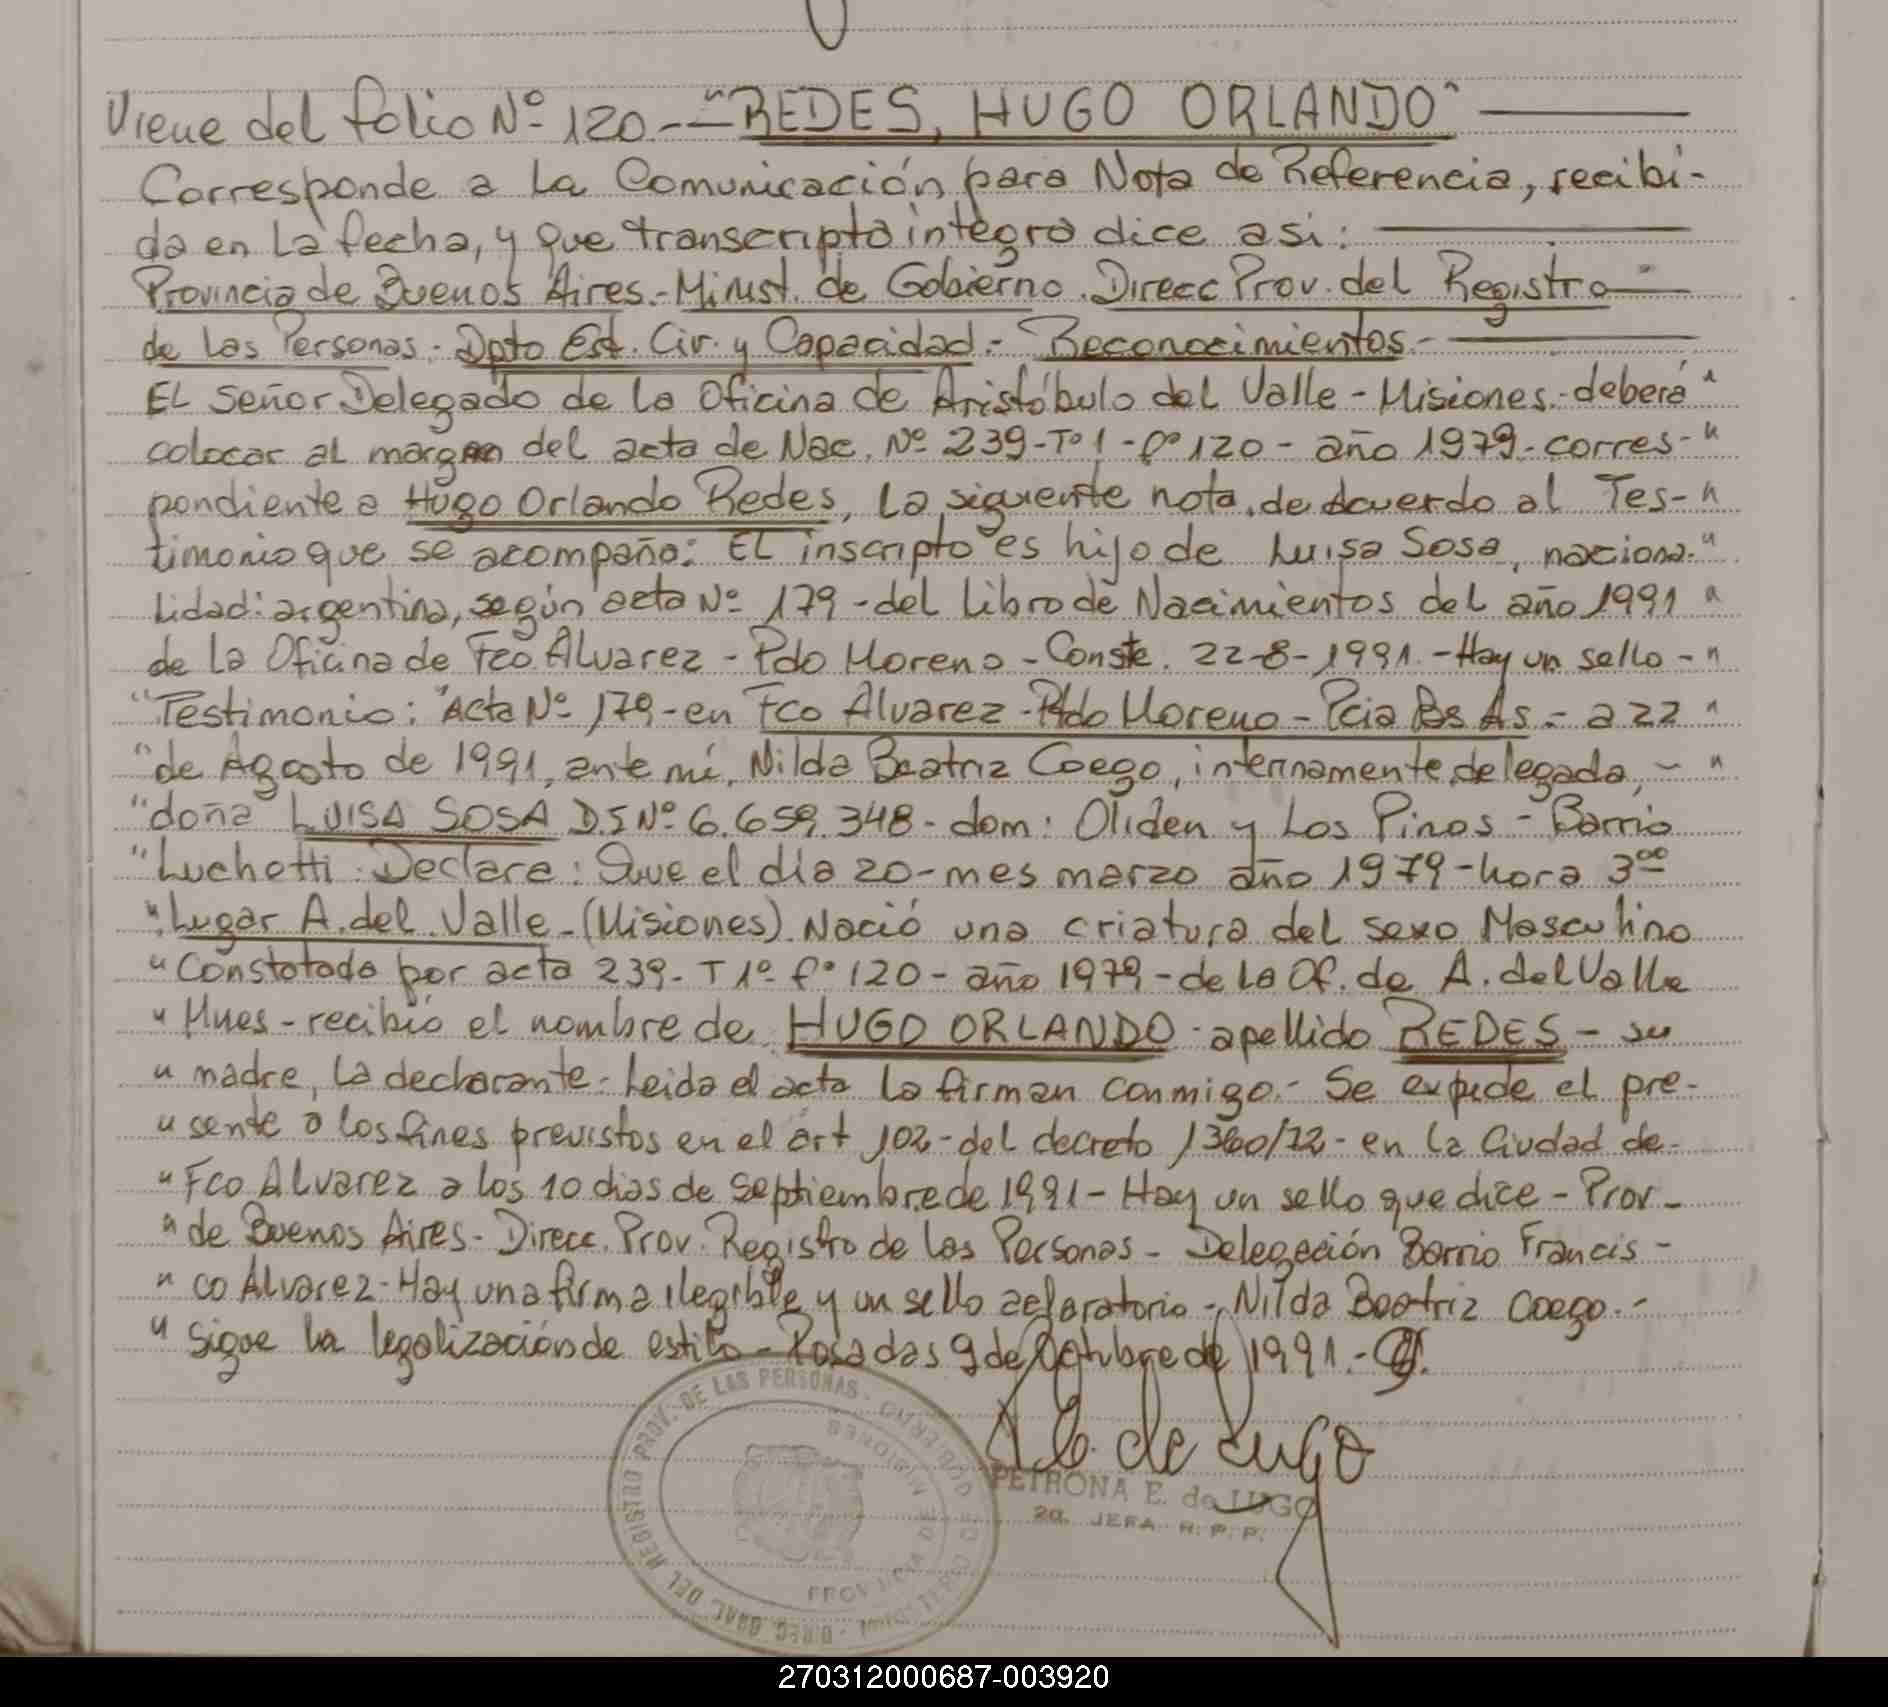 Viene del folio Nº 120.- "REDES, HUGO ORLANDO"
Corresponde a la Comunicación para Nota de Referencia, recibi-
da en la fecha, y que transcripto integro dice asi:
Provincia de Buenos Aires.- Minist. de Gobierno. Direcc Prov. del Registro
de las Personas. Dpto Est. Civ. y Capacidad.- Reconocimientos.-
El Señor Delegado de la Oficina de Aristóbulo del Valle - Misiones.- deberá "
colocar al margen del acta de Nac. Nº 239-Tº1-fº120- año 1979.- corres- "
pondiente a Hugo Orlando Redes, la siguiente nota, de acuerdo al Tes- "
timonio que se acompaña: El inscripto es hijo de Luisa Sosa, naciona- "
lidad: argentina, según acta Nº 179 - del libro de Nacimientos del año 1991 "
de la Oficina de Fco Alvarez - Pdo Moreno - Conste. 22-8-1991.- Hay un sello - "
"Testimonio: "Acta Nº 179 - en Fco Alvarez - Pdo Moreno - Pcia Bs As - a 22 "
"de Agosto de 1991, ante mí, Nilda Beatriz Coego, internamente delegada, - "
"doña LUISA SOSA D.I Nº 6.659.348 - dom: Oliden y Los Pinos - Barrio
"Luchetti. Declara: Que el día 20 - mes marzo año 1979 - hora 3ºº
"Lugar A. del Valle - (Misiones). Nació una criatura del sexo Masculino
"Constatada por acta 239 - T 1º fº 120 - año 1979 - de la Of. de A. del Valle
"Mnes - recibió el nombre de HUGO ORLANDO apellido REDES - su
"madre, la declarante - Leida el acta la firman conmigo.- Se expide el pre-
"sente a los fines previstos en el art 102 - del decreto 1360/72 - en la Ciudad de
"Fco Alvarez a los 10 dias de Septiembre de 1991 - Hay un sello que dice - Prov-
"de Buenos Aires - Direcc. Prov. Registro de las Personas - Delegación Barrio Francis-
"co Alvarez - Hay una firma ilegible y un sello aclaratorio - Nilda Beatriz Coego.-
"Sigue la legalización de estilo - Posadas 9 de Octubre de 1991.-
de Lugo
PETRONA E. de LUGO
2a. JEFA R. P. P.
DIREC. GRAL. DEL REGISTRO PROV. DE LAS PERSONAS
PROVINCIA DE MISIONES
270312000687-003920